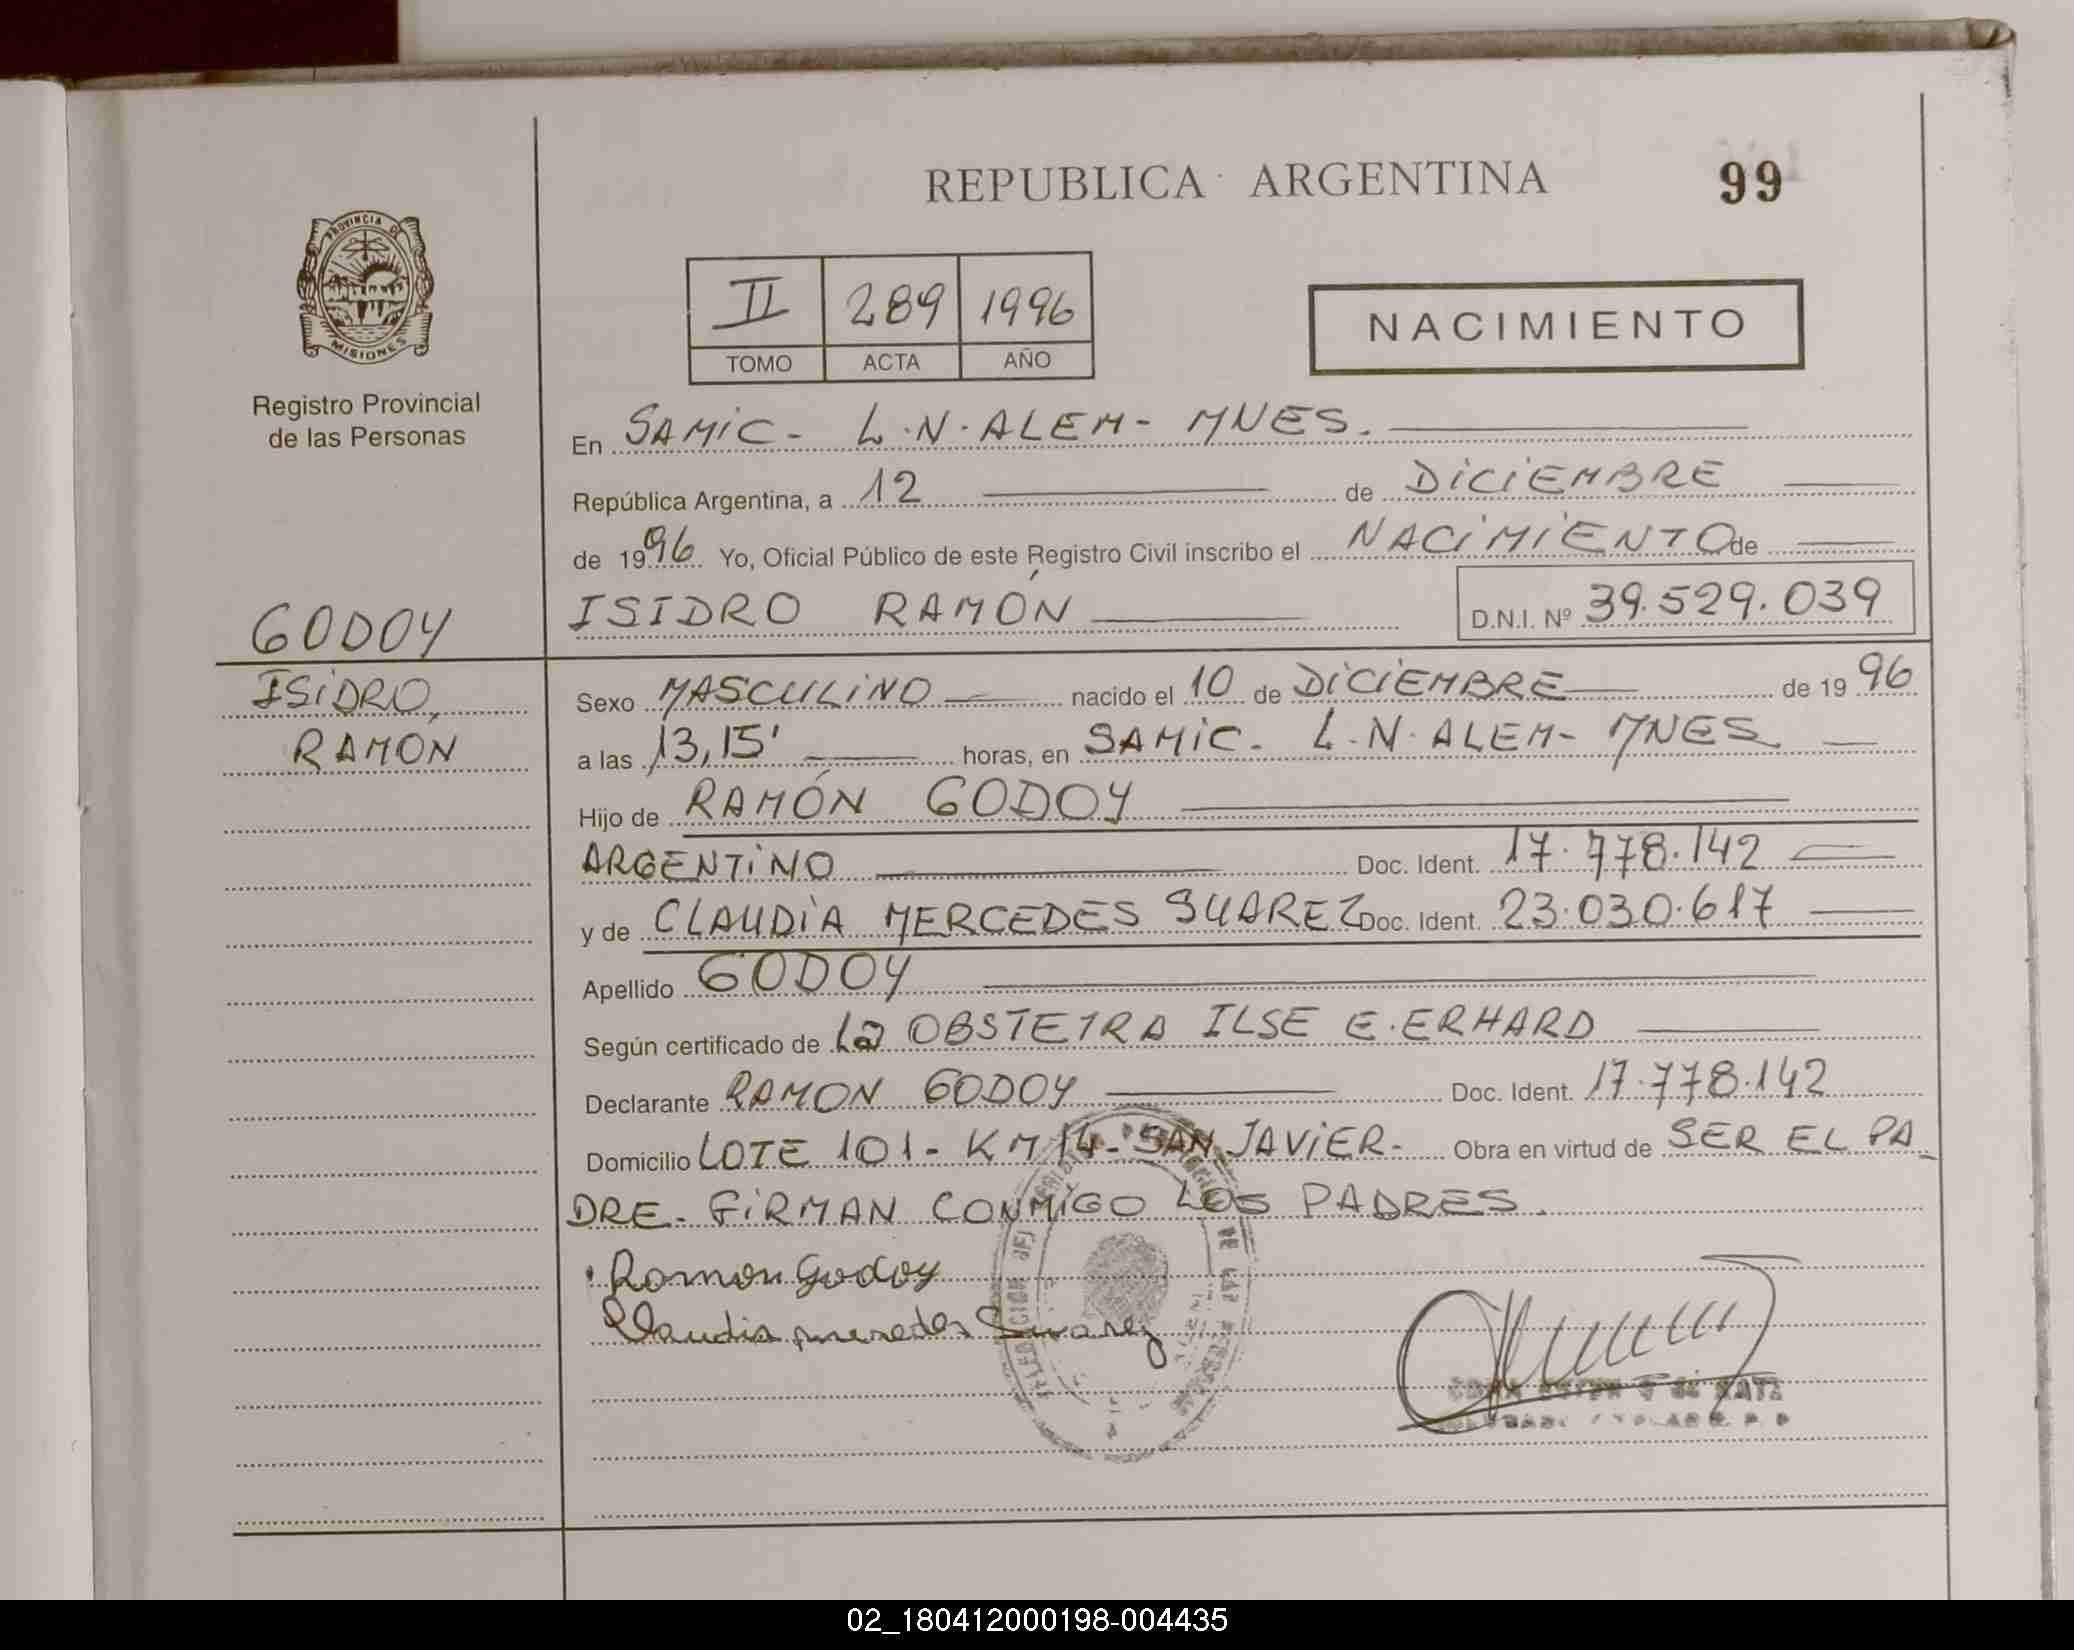 REPUBLICA ARGENTINA
99
PROVINCIA DE
MISIONES
Registro Provincial
de las Personas
II 289 1996
TOMO ACTA AÑO
NACIMIENTO
En SAMIC - L.N. ALEM - MNES.
República Argentina, a 12 de DICIEMBRE
de 1996 Yo, Oficial Público de este Registro Civil inscribo el NACIMIENTO de
ISIDRO RAMÓN D.N.I. Nº 39.529.039
GODOY
ISIDRO,
RAMON
Sexo MASCULINO nacido el 10 de DICIEMBRE de 1996
a las 13,15' horas, en SAMIC - L.N. ALEM - MNES
Hijo de RAMÓN GODOY
ARGENTINO Doc. Ident. 17.778.142
y de CLAUDIA MERCEDES SUAREZ Doc. Ident. 23.030.617
Apellido GODOY
Según certificado de La OBSTETRA ILSE E. ERHARD
Declarante RAMON GODOY Doc. Ident. 17.778.142
Domicilio LOTE 101 - KM 14 - SAN JAVIER - Obra en virtud de SER EL PA_
DRE - FIRMAN CONMIGO LOS PADRES.
Ramon Godoy
Claudia mercedes Suarez
02_180412000198-004435